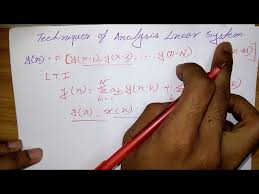 Techniques of Analysis Linear System
y(n) = F [y(n-1), y(n-2), ... y(n-N)
LTI
y(n) = N Σ k=1 aₖ y(n-k) + Σ
y(n) x(n)